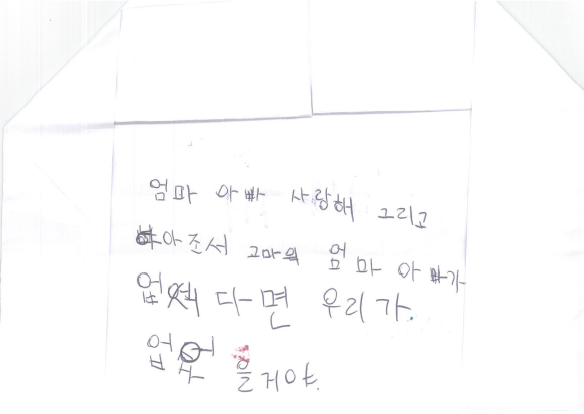 엄마 아빠 사랑해 그리고
낳아준서 고마워 엄마 아빠가
없서다면 우리가
없서 을거야.